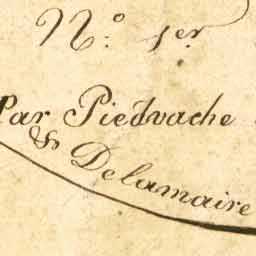 N.º 1er
Par Piedvache
& Delamaire